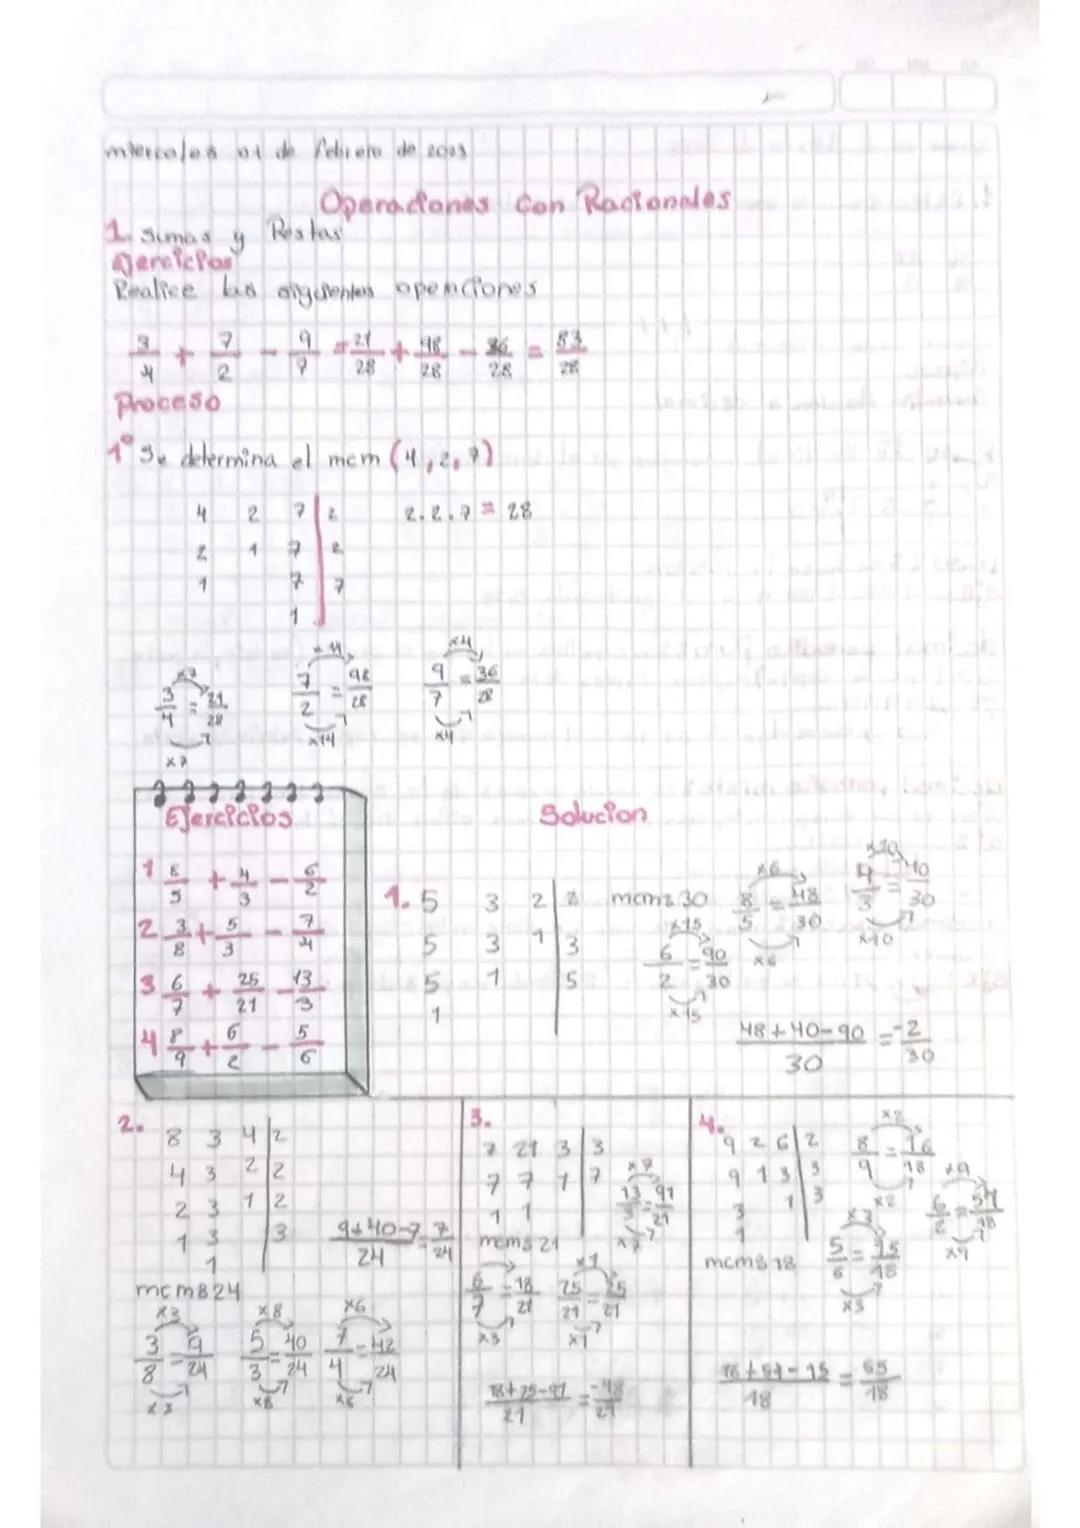 miercoles 01 de febrero de 2023
Operaciones con Racionales
1. Sumas y Restas
Ejercicios
Realice las siguientes operaciones
3/4 + 7/2 - 9/7 = 21/28 + 98/28 - 36/28 = 83/28
Proceso
1° Se determina el mcm (4, 2, 7)
4 2 7 | 2 2.2.7 = 28
2 1 7 | 2
1 7 | 7
1
x7 3/4 = 21/28 x7
7/2 = 98/28 x14
x4 9/7 = 36/28 x4
Ejercicios
1 8/5 + 4/3 - 6/2
2 3/8 + 5/3 - 7/4
3 6/7 + 25/21 - 13/3
4 8/9 + 6/2 - 5/6
Solucion
1. 5 3 2 | 2 mcm: 30
5 3 1 | 3
5 1 | 5
1
x6 8/5 = 48/30 x6
x10 4/3 = 40/30 x10
x15 6/2 = 90/30 x15
48+40-90/30 = -2/30
2.
8 3 4 | 2
4 3 2 | 2
2 3 1 | 2
1 3 | 3
1
9+40-7/24 = 7/24
mcm8 24
x3 3/8 = 9/24 x3
x8 5/3 = 40/24 x8
x6 7/4 = 42/24 x6
3.
7 21 3 | 3
7 7 1 | 7
1 1
mcm8 21
x7 13/3 = 91/21 x7
6/7 = 18/21 x3
x1 25/21 = 25/21 x1
18+25-91/21 = -48/21
4.
9 2 6 | 2
9 1 3 | 3
3 1 | 3
1
mcm8 18
x2 8/9 = 16/18 x2
x9 6/2 = 54/18 x9
x3 5/6 = 15/18 x3
16+54-15/18 = 55/18